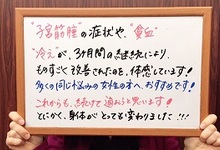 "子宮筋腫"の症状や、"貧血"
"冷え"が、3ヶ月間の継続により、
ものすごく改善されたのを、体感しています!
多くの同じ悩みの女性の方へ、おすすめです!
これからも、続けて通おうと思います!
とにかく、身体がとっても変わりました!!!